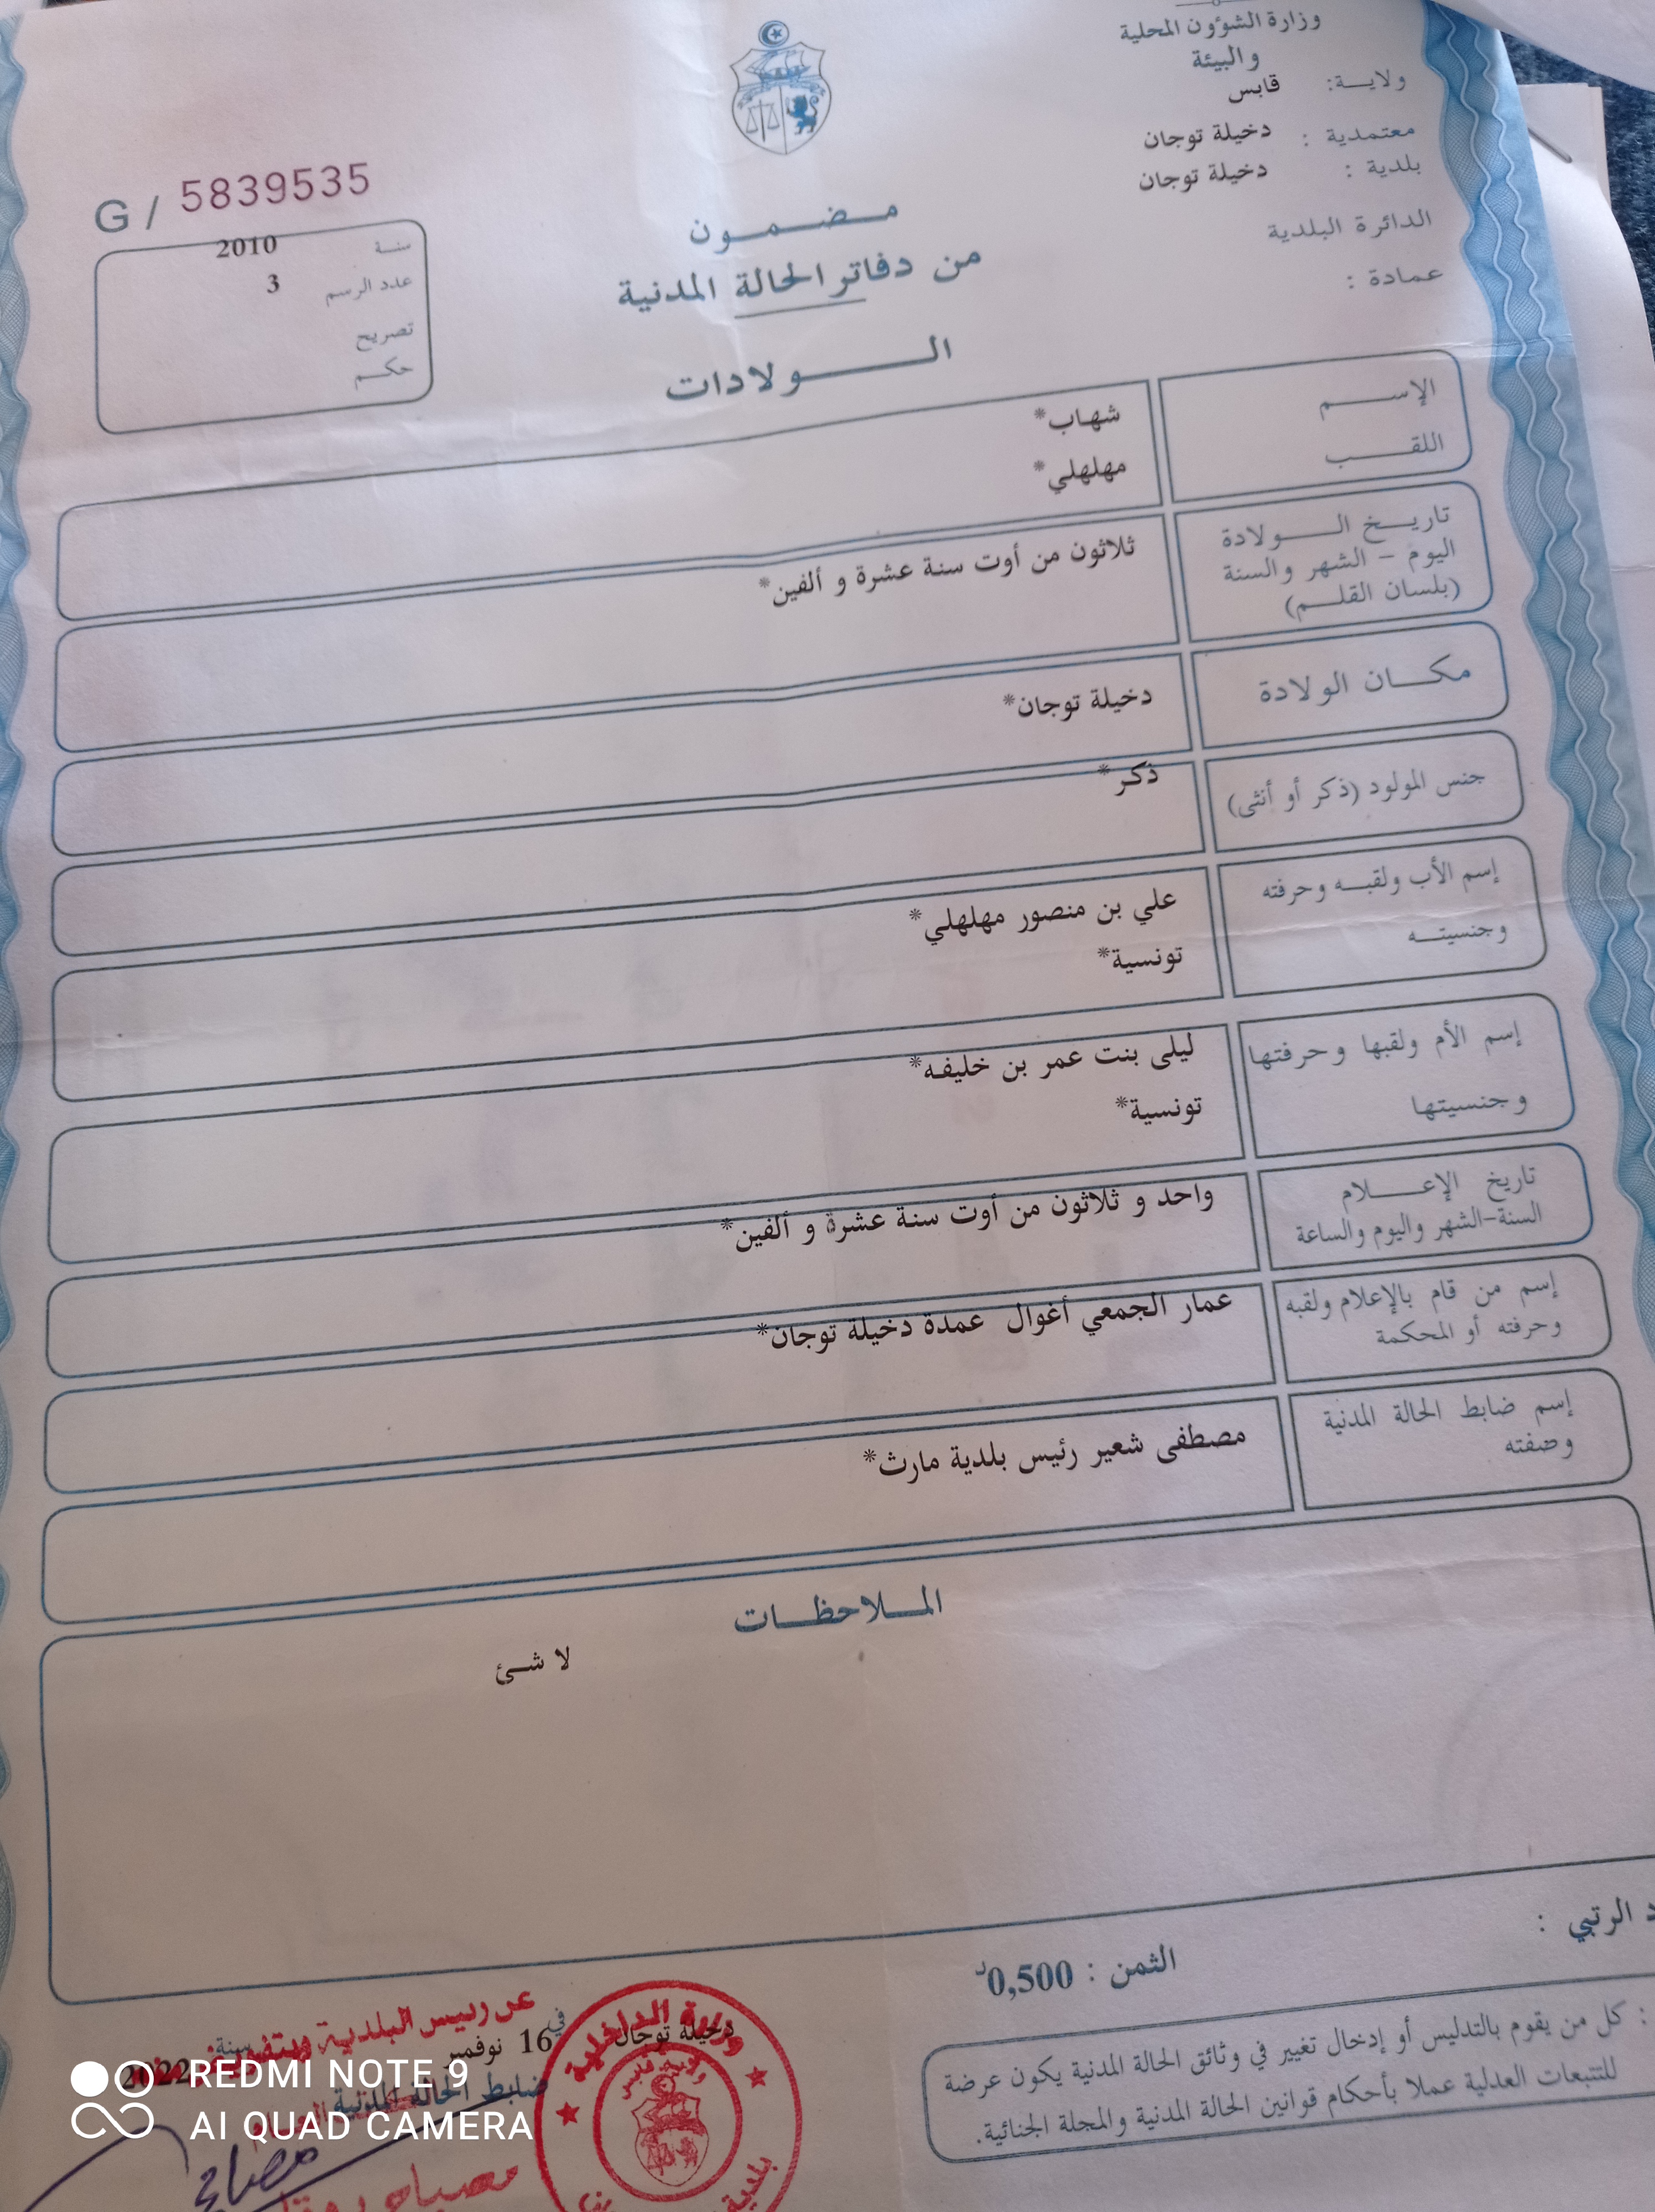 وزارة الشؤون المحلية
والبيئة
ولاية: قابس
معتمدية : دخيلة توجان
بلدية : دخيلة توجان
الدائرة البلدية
عمادة :
G / 5839535
سنة 2010
عدد الرسم 3
تصريح
حكم
مضمون
من دفاتر الحالة المدنية
الولادات
الإسم شهاب*
اللقب مهلهلي*
تاريخ الولادة
اليوم – الشهر والسنة
(بلسان القلم)
ثلاثون من أوت سنة عشرة و ألفين*
مكان الولادة دخيلة توجان*
جنس المولود (ذكر أو أنثى) ذكر*
إسم الأب ولقبه وحرفته علي بن منصور مهلهلي*
وجنسيته تونسية*
إسم الأم ولقبها وحرفتها ليلى بنت عمر بن خليفه*
وجنسيتها تونسية*
تاريخ الإعلام
السنة-الشهر واليوم والساعة
واحد و ثلاثون من أوت سنة عشرة و ألفين*
إسم من قام بالإعلام ولقبه
وحرفته أو المحكمة
عمار الجمعي أغوال عمدة دخيلة توجان*
إسم ضابط الحالة المدنية
وصفته
مصطفى شعير رئيس بلدية مارث*
الملاحظات
لا شئ
الرتبي :
الثمن : 0,500د
: كل من يقوم بالتدليس أو إدخال تغيير في وثائق الحالة المدنية يكون عرضة
للتتبعات العدلية عملا بأحكام قوانين الحالة المدنية والمجلة الجنائية.
دخيلة توجان في 16 نوفمبر سنة 2022
ضابط الحالة المدنية
عن رئيس البلدية وبتفويض منه
مصباح
وزارة الداخلية
ولاية قابس
بلدية
REDMI NOTE 9
AI QUAD CAMERA